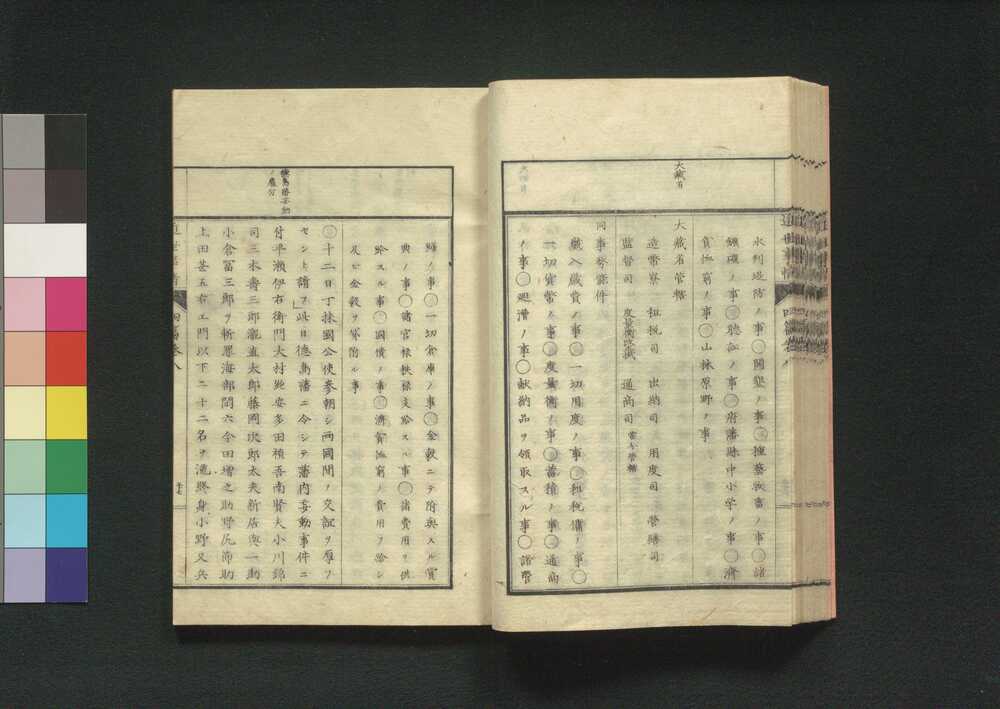 大蔵省
水利堤防ノ事○開墾ノ事○種藝牧畜ノ事○諸
鑛礦ノ事○聽訟ノ事○府藩縣中小学ノ事○濟
貧恤窮ノ事○山林原野ノ事
大蔵省管轄
造幣寮 租税司 出納司 用度司 營繕司
監督司 度量衡改正 通商司
同事務條件
歳入歳費ノ事○一切用度ノ事○租税庸ノ事○
一切貨幣ノ事○度量衡ノ事○蓄積ノ事○通商
ノ事○廻漕ノ事○献納品ヲ領取スル事○諸幣
歸ノ事○一切倉庫ノ事○金穀ニテ附與スル賞
典ノ事○諸官禄秩禄支給スル事○諸費用ヲ供
給スル事○國債ノ事○濟貧恤窮ノ費用ヲ給シ
及ヒ金穀ヲ貸附ル事
○十二日丁抹國公使参朝シ両國間ノ交誼ヲ厚フ
セント請フ此日徳島藩ニ令シテ藩内妄動事件ニ
付平瀬伊右衛門大村
安多田禎吾南賢夫小川錦
司三木壽三郎瀧直太郎藤岡次郎太夫新居與一助
小倉冨三郎ヲ斬罪海部閑六今田増之助野尻節助
上田甚五右エ門以下二十二名ヲ流終身小野又兵